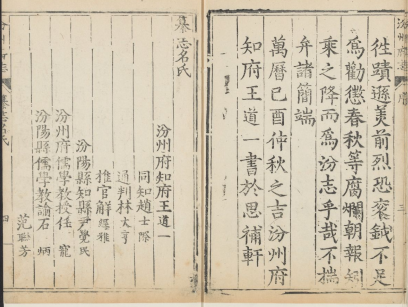 徃蹟遜美前烈恐袞鉞不足
為勸懲春秋等腐爛朝報知
乘之降而為汾志乎哉不揣
弁諸簡端
萬曆己酉仲秋之吉汾州府
知府王道一書於思補軒
纂志名氏
汾州府知府王道一
同知趙士際
通判林大亨
推官解經雅
汾陽縣知縣尹覺民
汾州府儒學教授任寵
汾陽縣儒學教諭石炳
范聯芳
四
三